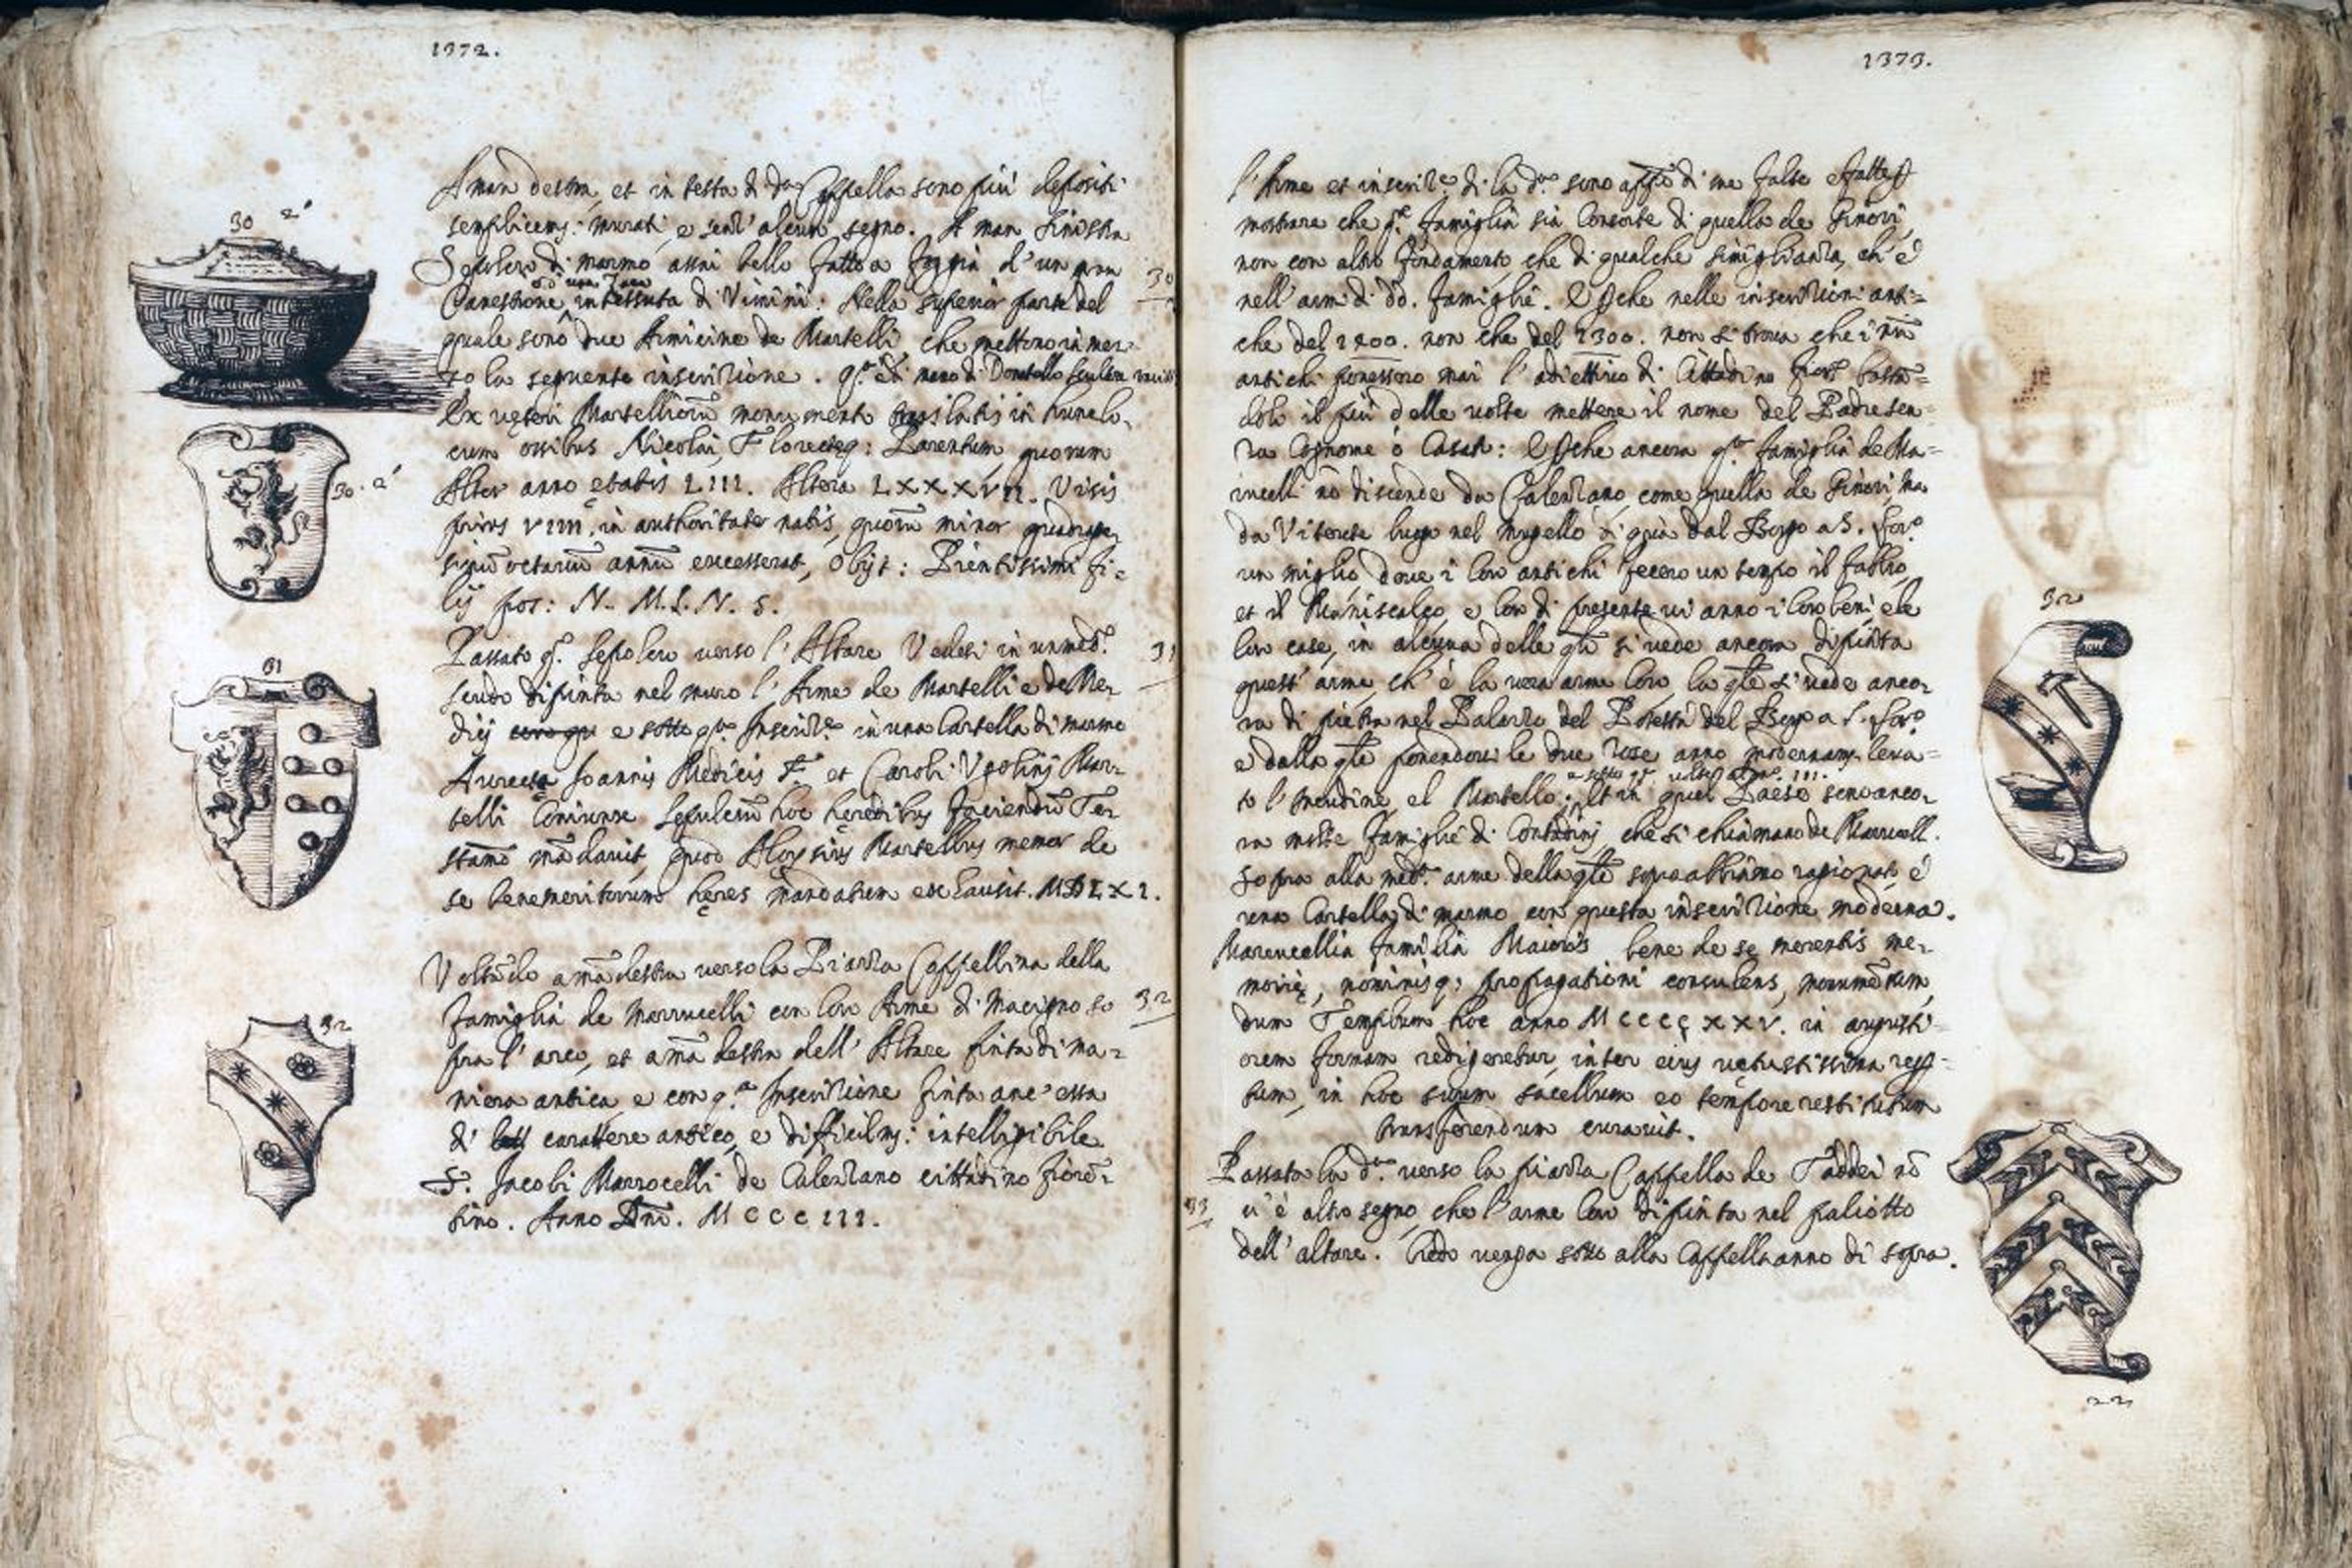 1372.
A man destra, et in testa di da Cappella sono più depositi
semplicem: murati e senz' alcun segno. A man sinistra
Sepolcro di marmo assai bello fatto a foggia d'un gran
30
Canestrone intessuta di Vimini. Nella superior parte del
quale sono due Armicine de Martelli che mettono in mez-
zo la seguente inscrizione. di mano di Donatello
Ex veteri Martelliorū monumento in hunc lo-
cum ossibus Nicolai, Parentum, quorum
Alter anno etatis LIII. Altera LXXXVII. Visis
prius VIIII. in authoritate natis, quorū minor
octavū annū excesserat, Obijt: Pientissimi fi-
lij pos: N. M. L. N. S.
Passato q. sepolcro verso l'Altare Vedesi in un med.
31
scudo dipinta nel muro l'Arme de Martelli e de Me-
dici e sotto Inscriz.e in una Cartella di marmo
Ioannis Medicis F. et Caroli Ugolinj Mar-
telli Coniunx sepulcrū hoc heredibus faciendū Te-
stamō mādavit, quod Aloysius Martellus memor de
se benemeritorum heres mandatum exhausit. MDLXI.
Voltādo a mā destra verso la Piazza Cappellina della
famiglia de Marrucelli con loro Arme di Macigno so
32
pra l'arco, et a mā destra dell'Altare finta di ma-
niera antica e con q.a Inscrizione finta anc'essa
di carattere antico, e difficilm: intelligibile
S. Jacobi Marrocelli de Calenzano cittadino fiorē-
tino. Anno Dni. MCCCIII.
30 2°
30. 2°
31
32
1373.
l'Arme et inscriz.e di la d.a sono di me false e fatte
mostrare che q.a famiglia sia Consorte di quella de Ginori,
non con altro fondamento che di qualche simiglianza, ch'è
nell'armi di dd. famiglie. che nelle inscrizioni anti-
che del 1400. non che del 1300. non si trova che i
antichi ponessero mai l'adiettivo di Cittadino fior.
il più delle volte mettere il nome del Padre sen-
za Cognome ò Casato: che ancora q.a famiglia de Ma-
rucelli nō discende da Calenzano, come quella de Ginori, ma
da luogo nel mugello di quà dal Borgo a S. Lor.o
un miglio dove i loro antichi fecero un tempo il fabbro,
et il Maniscalco e loro di presente vi anno i loro beni, e le
lor case, in alcuna delle qli si vede ancora dipinta
quest'arme, ch'è la vera arme loro, la qle si vede anco-
ra di pietra nel Palazzo del Potestà del Borgo a S. Lor.o
e dalla qle ponendovi le due rose anno modernam. leva-
to l'Incudine, e 'l Martello; Et in quel Paese sono anco-
ra molte famiglie di Contadinj, che si chiamano de Marrucell.
Sopra alla med.a arme della qle sopra abbiamo ragionato, è
una Cartella di marmo con questa inscrizione moderna.
Marrucellia familia Maioris bene de se merentis me-
morię, nominisq; propagationi consulens, monumētum,
dum Templum hoc anno MCCCCXXV. in augusti-
orem formam redigeretur, inter eius vetustissima
tum, in hoc suum sacellum eo tempore restitutum
transferendum curavit.
Passata la d.a verso la piazza Cappella de Taddei nō
33
v'è altro segno, che l'arme loro dipinta nel paliotto
dell'altare. Credo venga sotto alla Cappella anno di sopra.
32
33